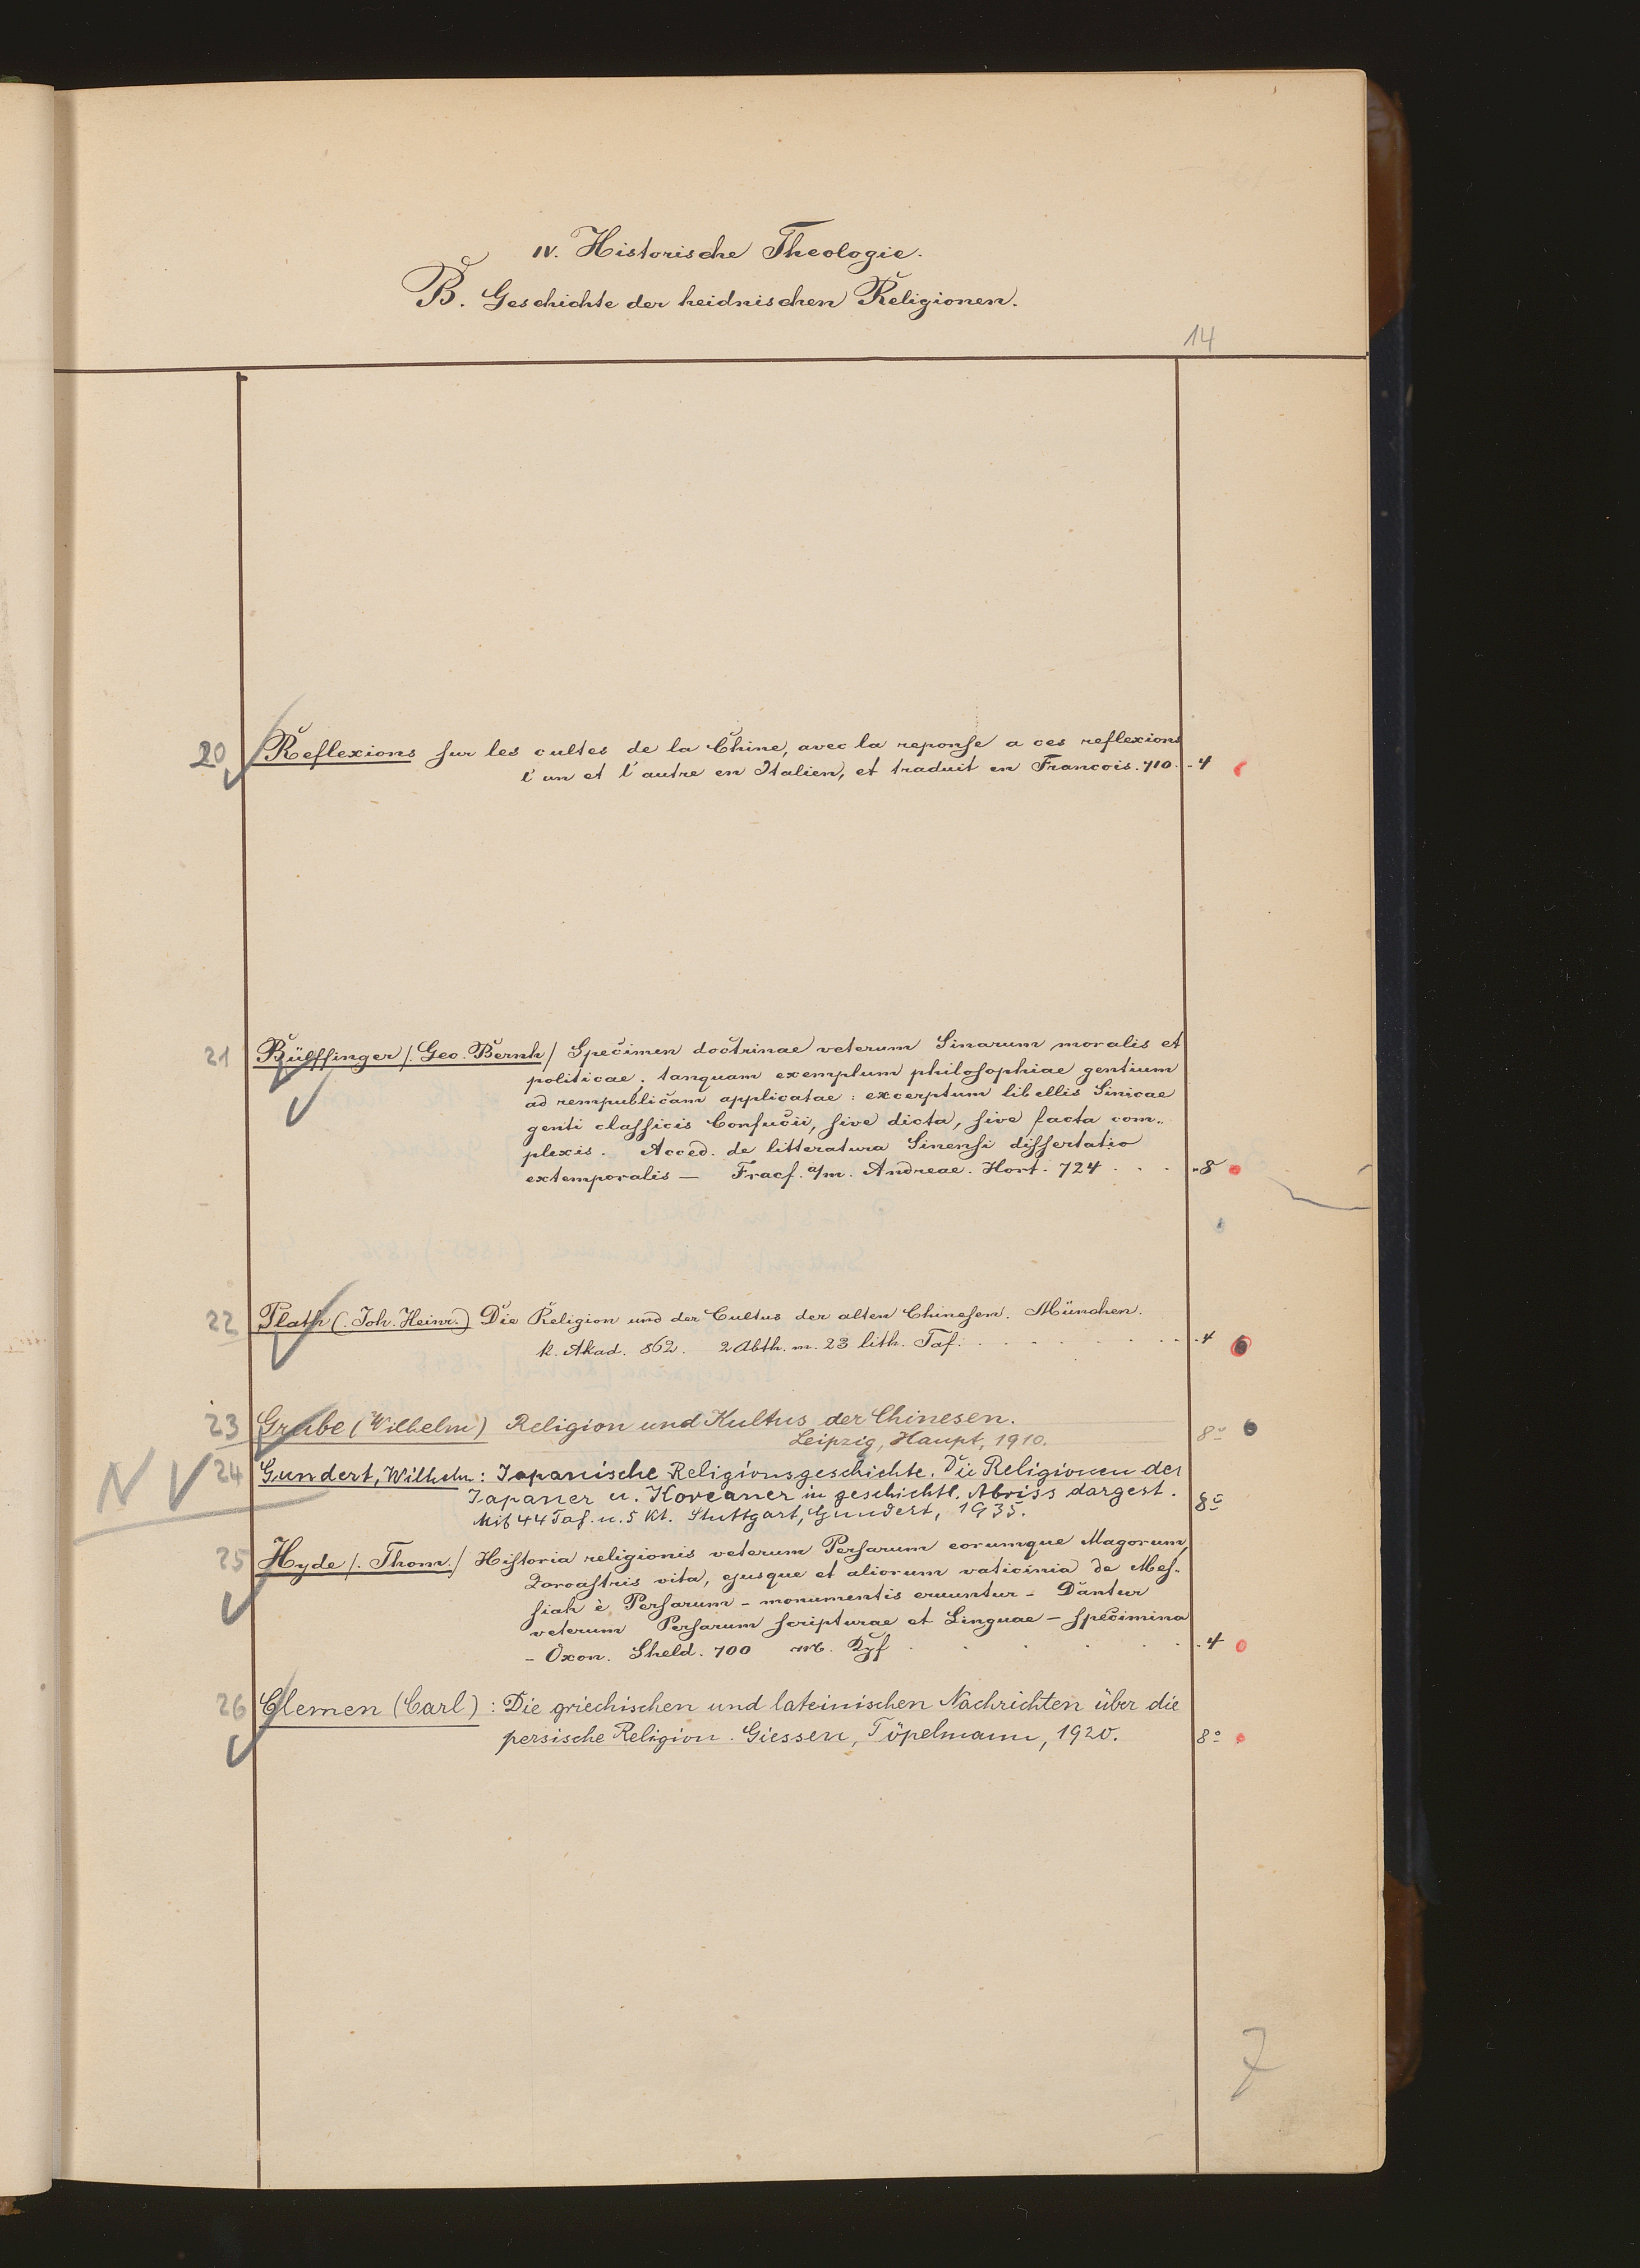 IV. Historische Theologie.
B. Geschichte der heidnischen Religionen.
14
20 Reflexions sur les cultes de la Chine, avec la reponse a ces reflexions
l'un et l'autre en Italien, et traduit en Francois. 710. 4
21 Bülffinger /. Geo. Bernh / Specimen doctrinae veterum Sinarum moralis et
politicae; tanquam exemplum philosophiae gentium
ad rempublicam applicatae: excerptum libellis Sinicae
genti classicis Confucii, sive dicta, sive facta com-
plexis. Acced. de litteratura Sinensi dissertatio
extemporalis — Fracf. a/m. Andreae. Hort. 724 . . . 8
22 Plath (. Joh. Heinr.) Die Religion und der Cultus der alten Chinesen. München.
k. Akad. 862. 2 Abth. m. 23 lith. Taf. . . . . . . . 4
23 Grube (Wilhelm) Religion und Kultus der Chinesen.
Leipzig, Haupt, 1910. 8º
NV 24 Gundert, Wilhelm: Japanische Religionsgeschichte. Die Religionen der
Japaner u. Koreaner in geschichtl. Abriss dargest.
Mit 44 Taf. u. 5 Kt. Stuttgart, Gundert, 1935. 8º
25 Hyde /. Thom./ Historia religionis veterum Persarum eorumque Magorum,
Zoroastris vita, ejusque et aliorum vaticinia de Mes-
siah è Persarum - monumentis eruuntur - Dantur
veterum Persarum scripturae et Linguae - specimina
- Oxon. Sheld. 700 m. . . . . . 4
26 Clemen (Carl): Die griechischen und lateinischen Nachrichten über die
persische Religion. Giessen, Töpelmann, 1920. 8º
7